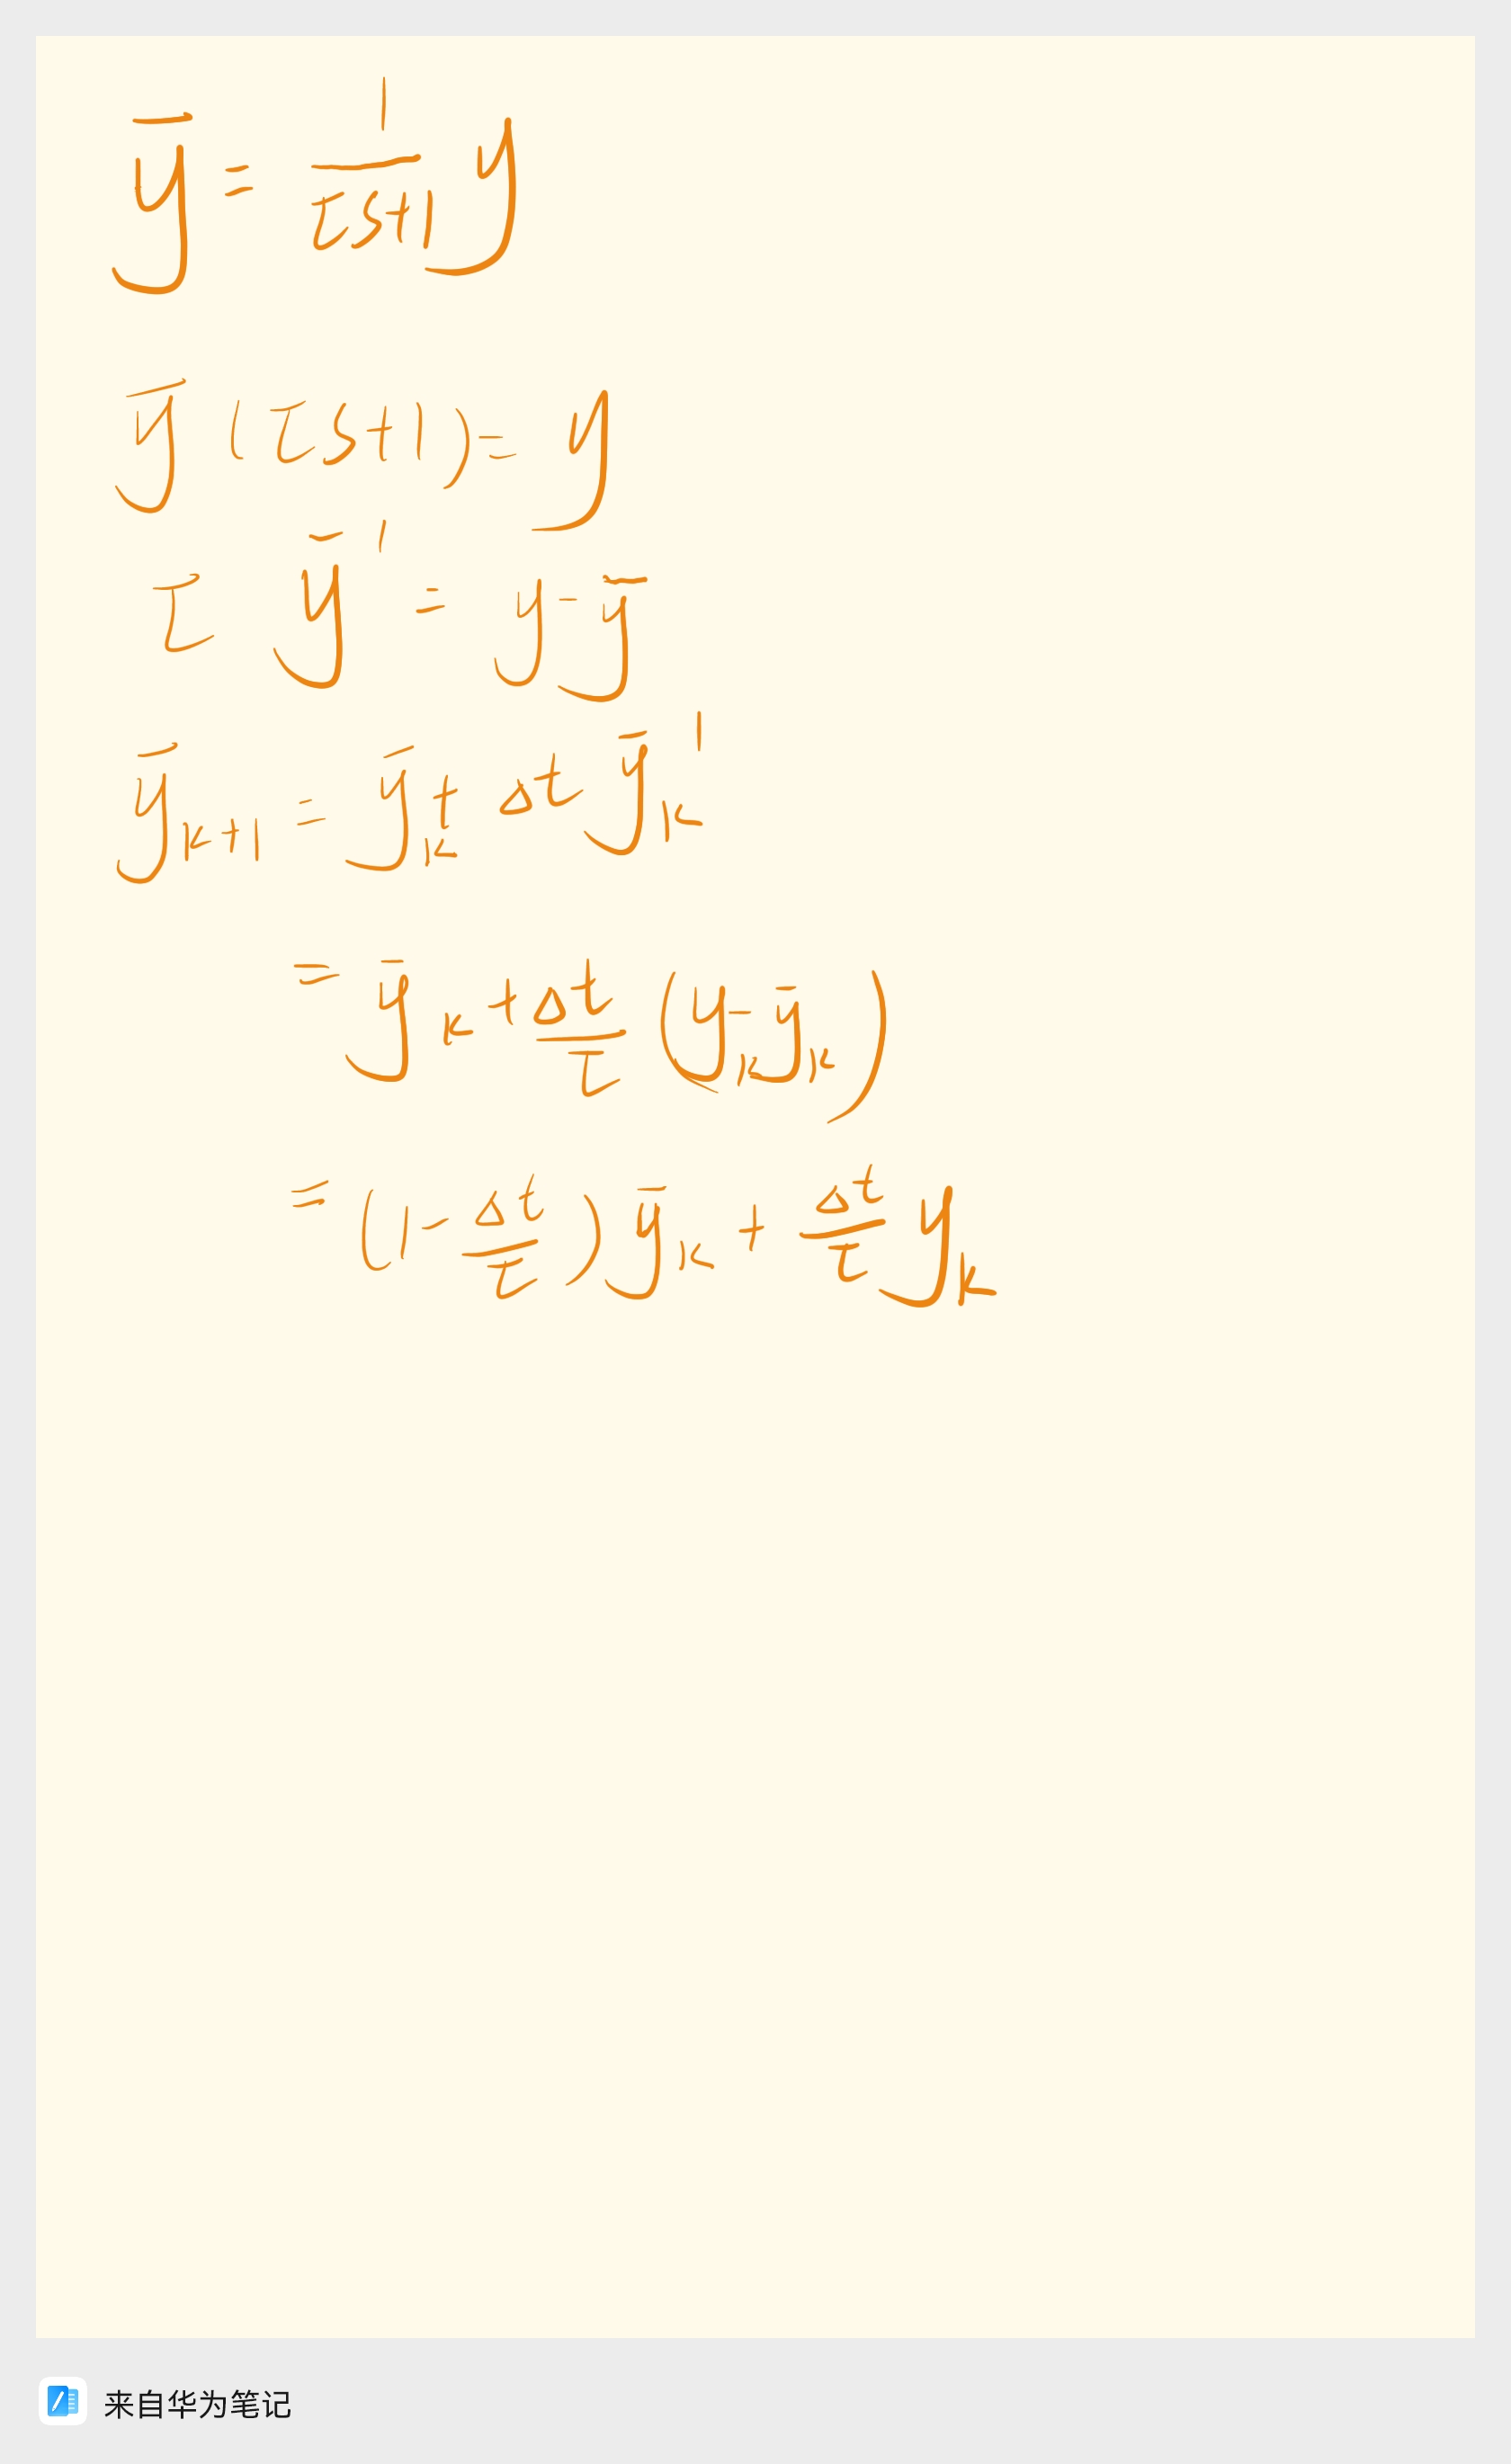 ȳ = 1/(τs+1) y
ȳ (τs+1) = y
τ ȳ' = y - ȳ
ȳₖ₊₁ = ȳₖ + Δt ȳₖ'
= ȳₖ + Δt/τ (yₖ - ȳₖ)
= (1 - Δt/τ) ȳₖ + Δt/τ yₖ
来自华为笔记